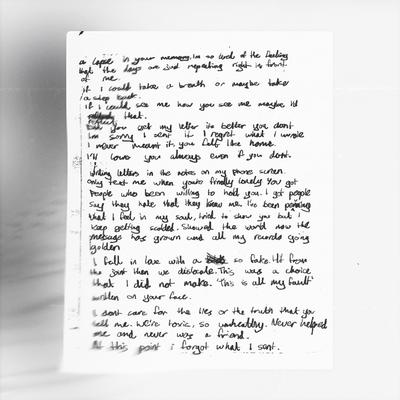 a lapse in your memory. Im so tired of the feeling
that the days are just repeating right in front
of me.
if I could take a breath or maybe take
a step back
if I could see me how you see me maybe I'd
that.
Did you get my letter its better you dont
Im sorry I sent it I regret what I wrote
I never meant it you felt like home.
I'll love you always even if you dont.
Writing letters in the notes on my phone screen.
Only text me when you're finally lonely You got
people who been willing to hold you. I got people
say they hate that they knew me. I've been
that I feel in my soul, tried to show you but I
keep getting scolded. Showed the world now the
message has grown and all my records going
golden
I fell in love with a so fake. Hit from
the joint then we dislocate. This was a choice
that I did not make. 'This is all my fault'
written on your face.
I dont care for the lies or the truth that you
tell me. We're toxic, so unhealthy. Never helped
me and never was a friend.
At this point i forgot what I sent.